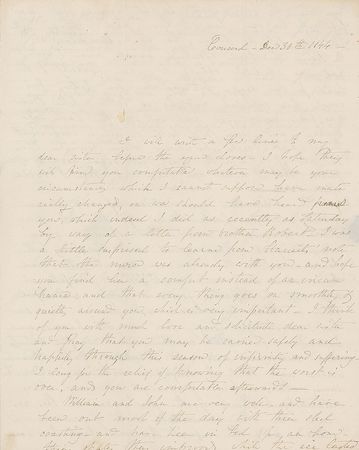 Concord - Dec 30th 1844 -
I will write a few lines to my
dear sister before the year closes - I hope they
will find you comfortable whatever may be your
circumstances which I cannot suppose have mate
rially changed, or we should have heard from
you, which indeed I did as recently as Saturday
by way of a letter from brother Robert. I was
a little surprised to learn from note
that the nurse was already with you - and hope
you find her a comfort instead of an
and that every thing goes on smoothly &
quietly around you which is very important - I think
of you with much love and solicitude dear sister
and pray that you may be carried safely and
happily through this season of infirmity and suffering.
I long for the relief of knowing that the worst is
over, and you are comfortable afterwards -
William and John are very well, and have
been out most of the day with their sleds
coasting - and have been in bed an hour
while the ice lasted